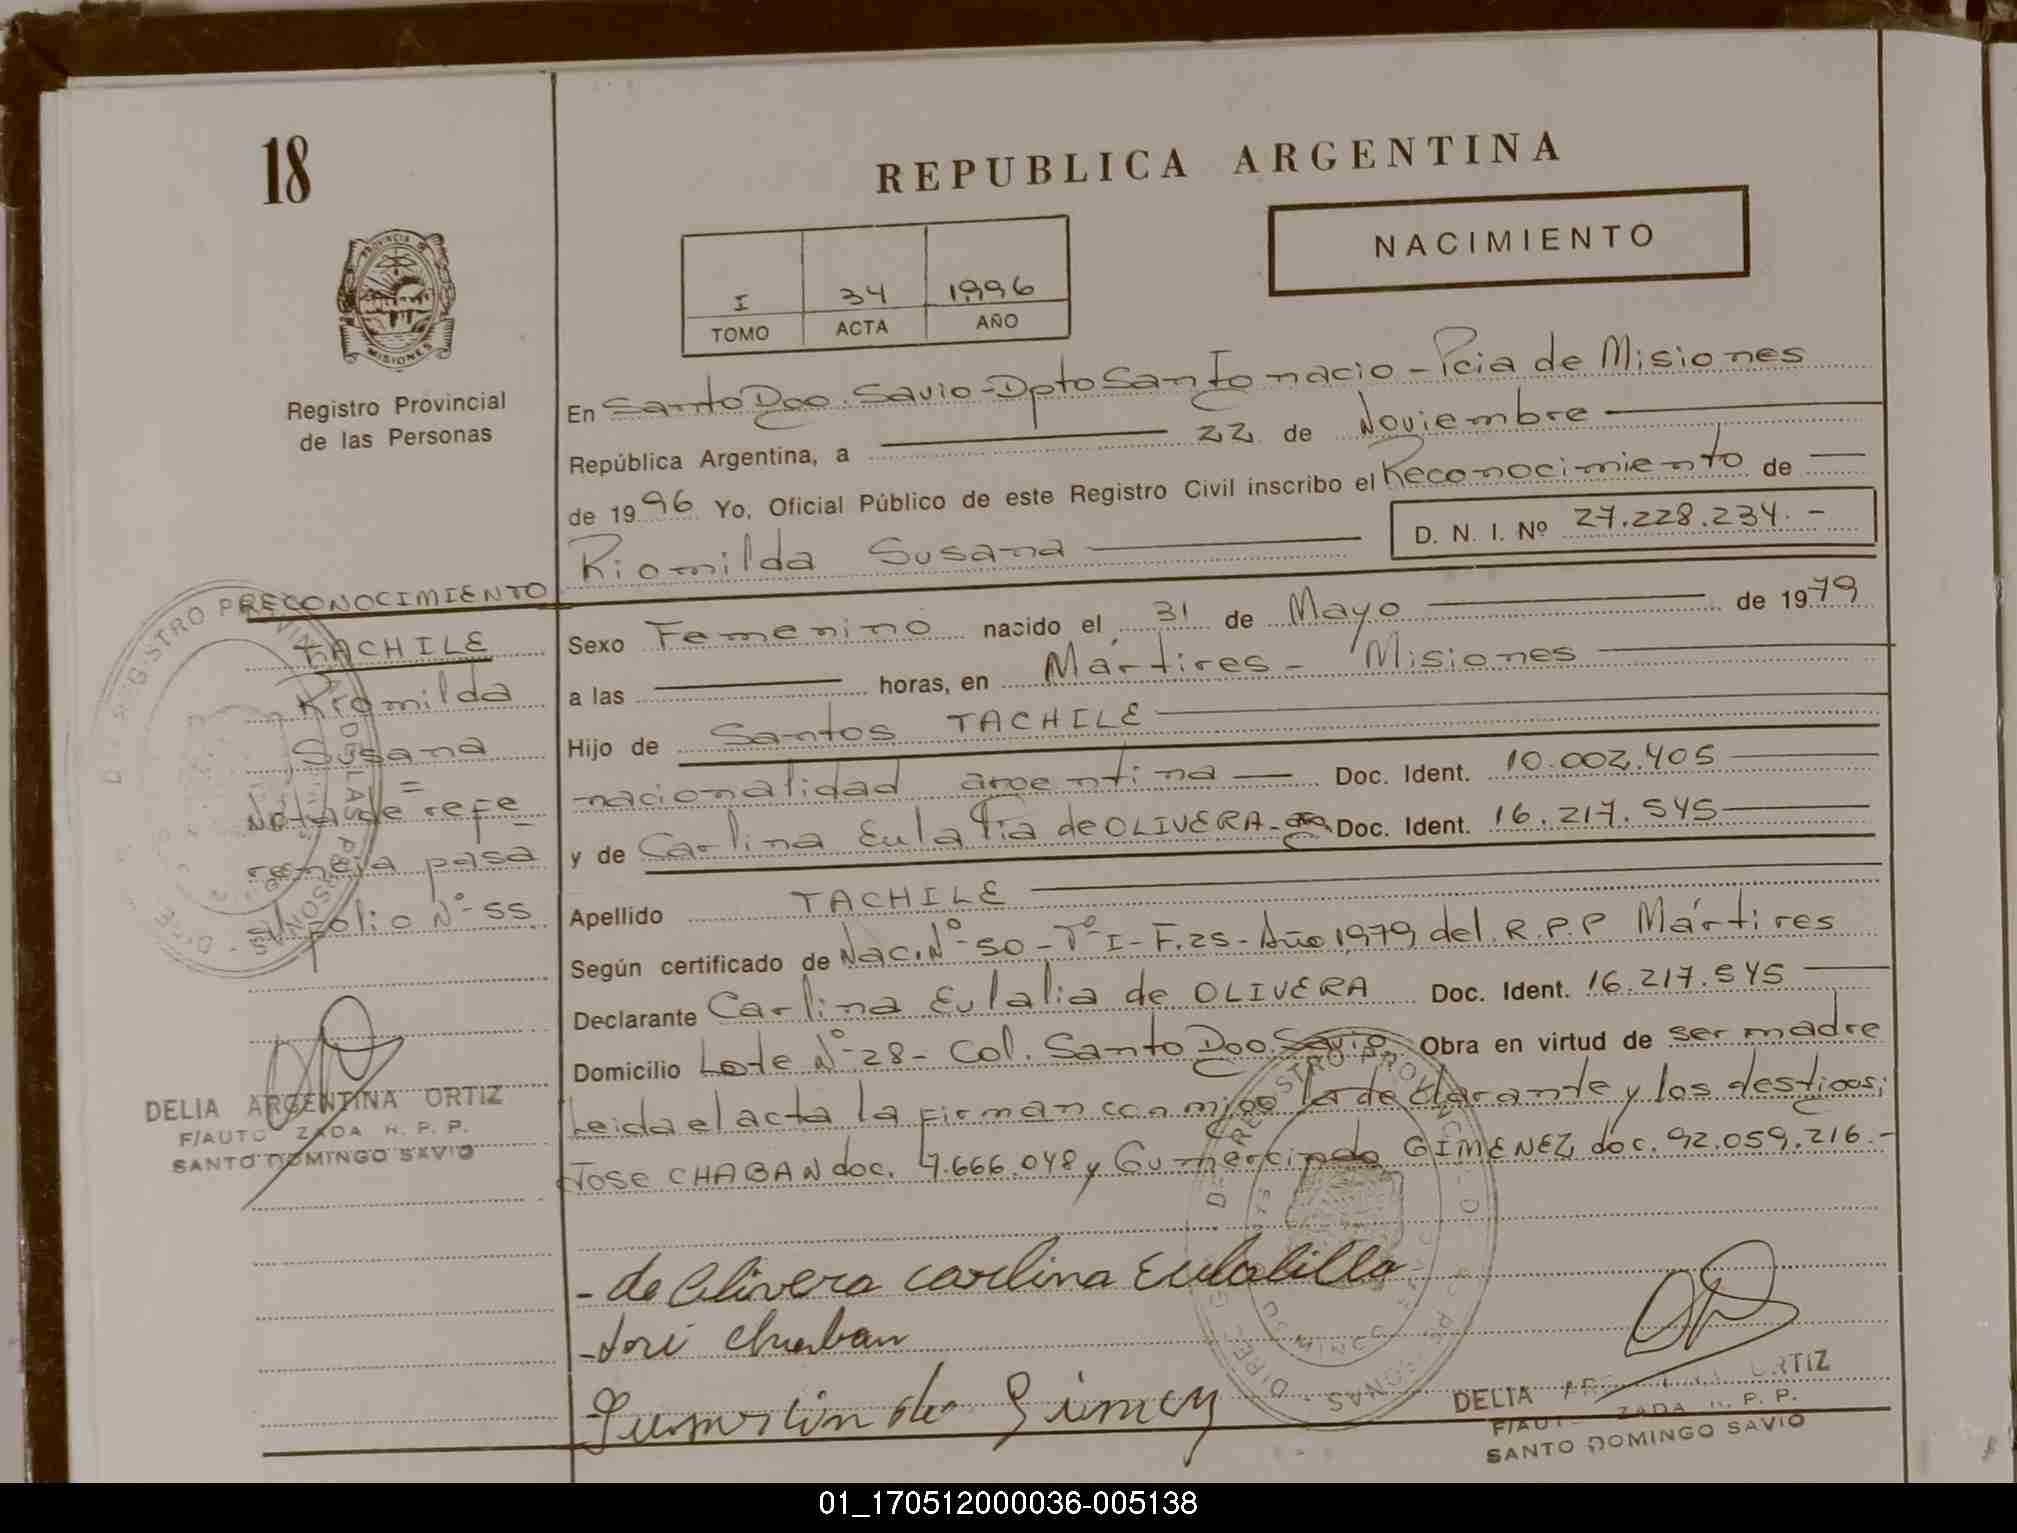 18
REPUBLICA ARGENTINA
NACIMIENTO
I 34 1996
TOMO ACTA AÑO
PROVINCIA DE
MISIONES
Registro Provincial
de las Personas
En Santo Dgo. Savio - Dpto San Ignacio - Pcia de Misiones
República Argentina, a 22 de Noviembre
de 1996 Yo, Oficial Público de este Registro Civil inscribo el Reconocimiento de
Riomilda Susana D. N. I. Nº 27.228.234.-
Sexo Femenino nacido el 31 de Mayo de 1979
a las horas, en Mártires - Misiones
Hijo de Santos TACHILE
nacionalidad argentina Doc. Ident. 10.002.405
y de Carlina Eulalia de OLIVERA - Doc. Ident. 16.217.545
Apellido TACHILE
Según certificado de Nac. Nº 50 - Tº I - F. 25 - Año 1979 del R.P.P Mártires
Declarante Carlina Eulalia de OLIVERA Doc. Ident. 16.217.545
Domicilio Lote Nº 28 - Col. Santo Dgo. Savio Obra en virtud de ser madre
Leida el acta la firman conmigo la declarante y los testigos:
Jose CHABAN doc. 7.666.048 y Gumercindo GIMENEZ doc. 92.059.216.-
- de Olivera Carlina Eulalilla
- José Chaban
Gumercindo Gimenez
DELIA ARGENTINA ORTIZ
F/AUTORIZADA R. P. P.
SANTO DOMINGO SAVIO
RECONOCIMIENTO
TACHILE
Riomilda
Susana
=
Nota de refe
rencia pasa
al folio Nº 55
DELIA ARGENTINA ORTIZ
F/AUTORIZADA R. P. P.
SANTO DOMINGO SAVIO
01_170512000036-005138